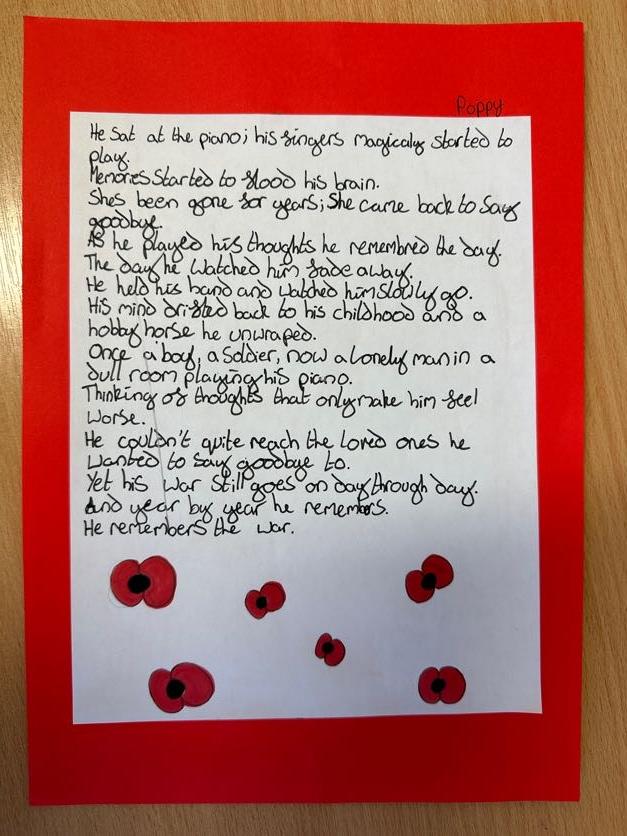 Poppy
He sat at the piano; his fingers magicaly started to
play.
Memories started to flood his brain.
Shes been gone for years; She came back to say
goodbye.
As he played his thoughts he remembred the day.
The day he watched him fade away.
He held his hand and watched him slowly go.
His mind drifted back to his childhood and a
hobby horse he unwraped.
Once a boy, a soldier, now a lonely man in a
dull room playing his piano.
Thinking of thoughts that only make him feel
worse.
He couldn't quite reach the loved ones he
wanted to say goodbye to.
Yet his war still goes on day through day.
And year by year he remembers.
He remembers the war.